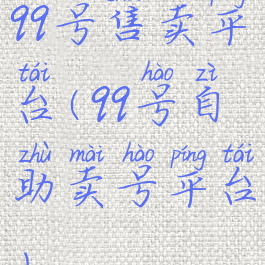 99号售卖平
tái hào zì
台(99号自
zhù mài hào píng tái
助卖号平台
)